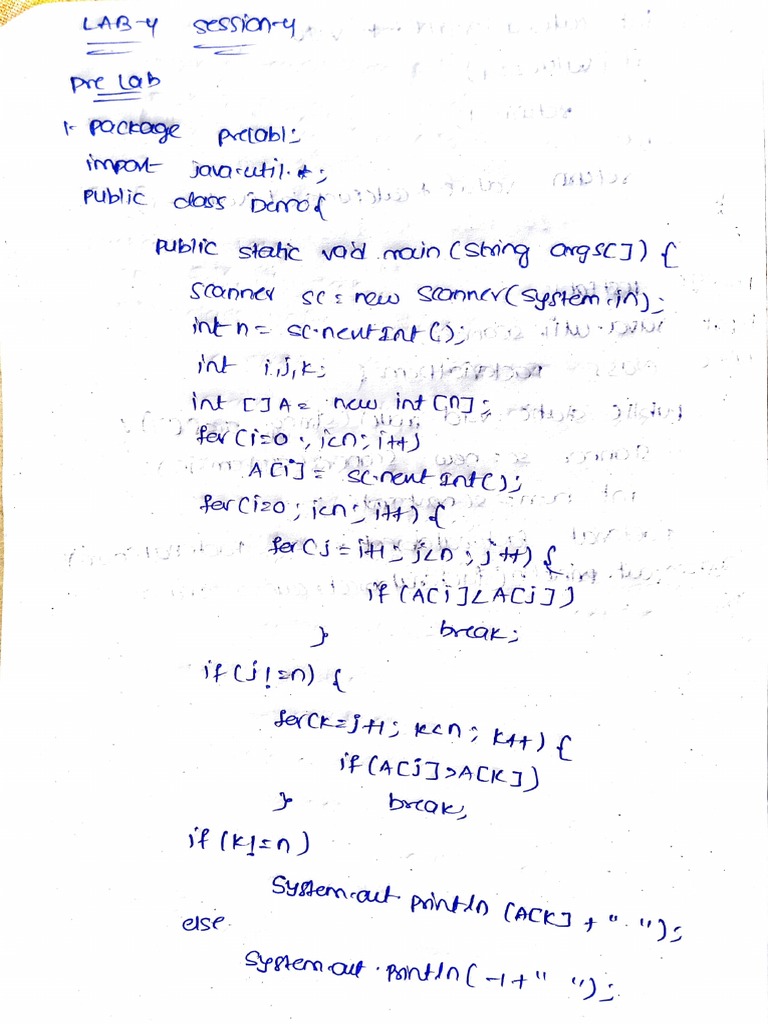 LAB-4 Session-4
Pre Lab
1. package prelab1;
import java.util.*;
public class Demo{
public static void main (String args[]) {
Scanner sc = new Scanner(System.in);
int n = sc.nextInt();
int i,j,k;
int []A = new int[n];
for(i=0; i<n; i++)
A[i] = sc.nextInt();
for(i=0; i<n; i++) {
for(j=i+1; j<n; j++) {
if (A[i]<A[j])
} break;
if(j!=n) {
for(k=j+1; k<n; k++) {
if(A[j]>A[k])
} break;
if(k!=n)
System.out.println (A[k] + " ");
else
System.out.println(-1+" ");